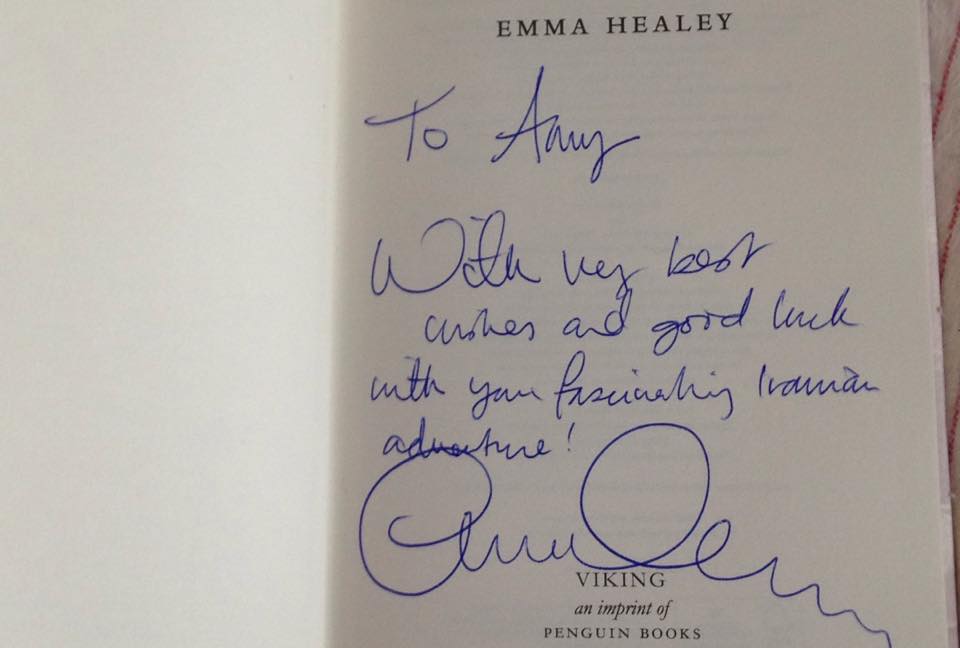 EMMA HEALEY
To Amy
With very best
wishes and good luck
with your fascinating Iranian
adventure!
VIKING
an imprint of
PENGUIN BOOKS